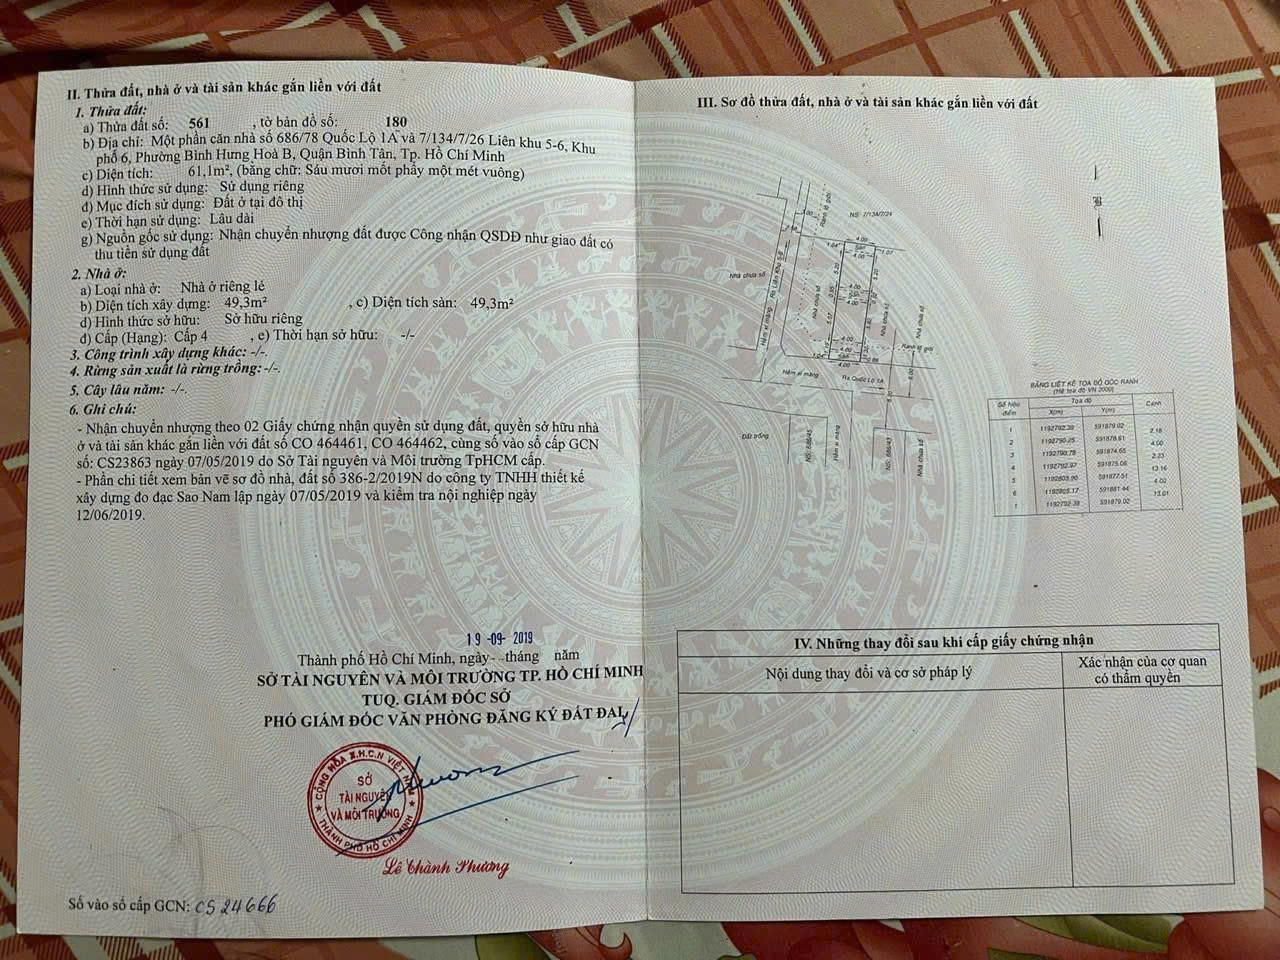 II. Thửa đất, nhà ở và tài sản khác gắn liền với đất
1. Thửa đất:
a) Thửa đất số: 561 , tờ bản đồ số: 180
b) Địa chỉ: Một phần căn nhà số 686/78 Quốc Lộ 1A và 7/134/7/26 Liên khu 5-6, Khu
phố 6, Phường Bình Hưng Hoà B, Quận Bình Tân, Tp. Hồ Chí Minh
c) Diện tích: 61,1m², (bằng chữ: Sáu mươi mốt phẩy một mét vuông)
d) Hình thức sử dụng: Sử dụng riêng
đ) Mục đích sử dụng: Đất ở tại đô thị
e) Thời hạn sử dụng: Lâu dài
g) Nguồn gốc sử dụng: Nhận chuyển nhượng đất được Công nhận QSDĐ như giao đất có
thu tiền sử dụng đất
2. Nhà ở:
a) Loại nhà ở: Nhà ở riêng lẻ
b) Diện tích xây dựng: 49,3m² , c) Diện tích sàn: 49,3m²
d) Hình thức sở hữu: Sở hữu riêng
đ) Cấp (Hạng): Cấp 4 , e) Thời hạn sở hữu: -/-
3. Công trình xây dựng khác: -/-.
4. Rừng sản xuất là rừng trồng: -/-.
5. Cây lâu năm: -/-.
6. Ghi chú:
- Nhận chuyển nhượng theo 02 Giấy chứng nhận quyền sử dụng đất, quyền sở hữu nhà
ở và tài sản khác gắn liền với đất số CO 464461, CO 464462, cùng số vào sổ cấp GCN
số: CS23863 ngày 07/05/2019 do Sở Tài nguyên và Môi trường TpHCM cấp.
- Phần chi tiết xem bản vẽ sơ đồ nhà, đất số 386-2/2019N do công ty TNHH thiết kế
xây dựng đo đạc Sao Nam lập ngày 07/05/2019 và kiểm tra nội nghiệp ngày
12/06/2019.
19 -09- 2019
Thành phố Hồ Chí Minh, ngày tháng năm
SỞ TÀI NGUYÊN VÀ MÔI TRƯỜNG TP. HỒ CHÍ MINH
TUQ. GIÁM ĐỐC SỞ
PHÓ GIÁM ĐỐC VĂN PHÒNG ĐĂNG KÝ ĐẤT ĐAI
CỘNG HÒA X.H.C.N VIỆT NAM
SỞ
TÀI NGUYÊN
VÀ MÔI TRƯỜNG
THÀNH PHỐ HỒ CHÍ MINH
Lê Thành Phương
Số vào sổ cấp GCN: CS 24666
III. Sơ đồ thửa đất, nhà ở và tài sản khác gắn liền với đất
NS: 7/134/7/24
Ranh lộ giới
Nhà chưa số
Hẻm xi măng
Ra Liên Khu 5-6
Nhà chưa số
Sân
4.00
4.00
1.04
1.07
5.20
5.20
Nhà chưa số
Nhà chưa số
Ranh lộ giới
Sân
4.00
Hẻm xi măng
Ra Quốc Lộ 1A
Đất trống
NS: 686/45
Hẻm xi măng
NS: 686/43
Nhà chưa số
BẢNG LIỆT KÊ TỌA ĐỘ GÓC RANH
(Hệ tọa độ VN 2000)
Số hiệu điểm Tọa độ Cạnh
X(m) Y(m)
1 1192792.39 591879.02
2.18
2 1192790.25 591878.61
4.00
3 1192790.78 591874.65
2.23
4 1192792.97 591875.06
13.16
5 1192805.90 591877.51
4.02
6 1192805.17 591881.44
13.01
1 1192792.39 591879.02
IV. Những thay đổi sau khi cấp giấy chứng nhận
Nội dung thay đổi và cơ sở pháp lý
Xác nhận của cơ quan
có thẩm quyền